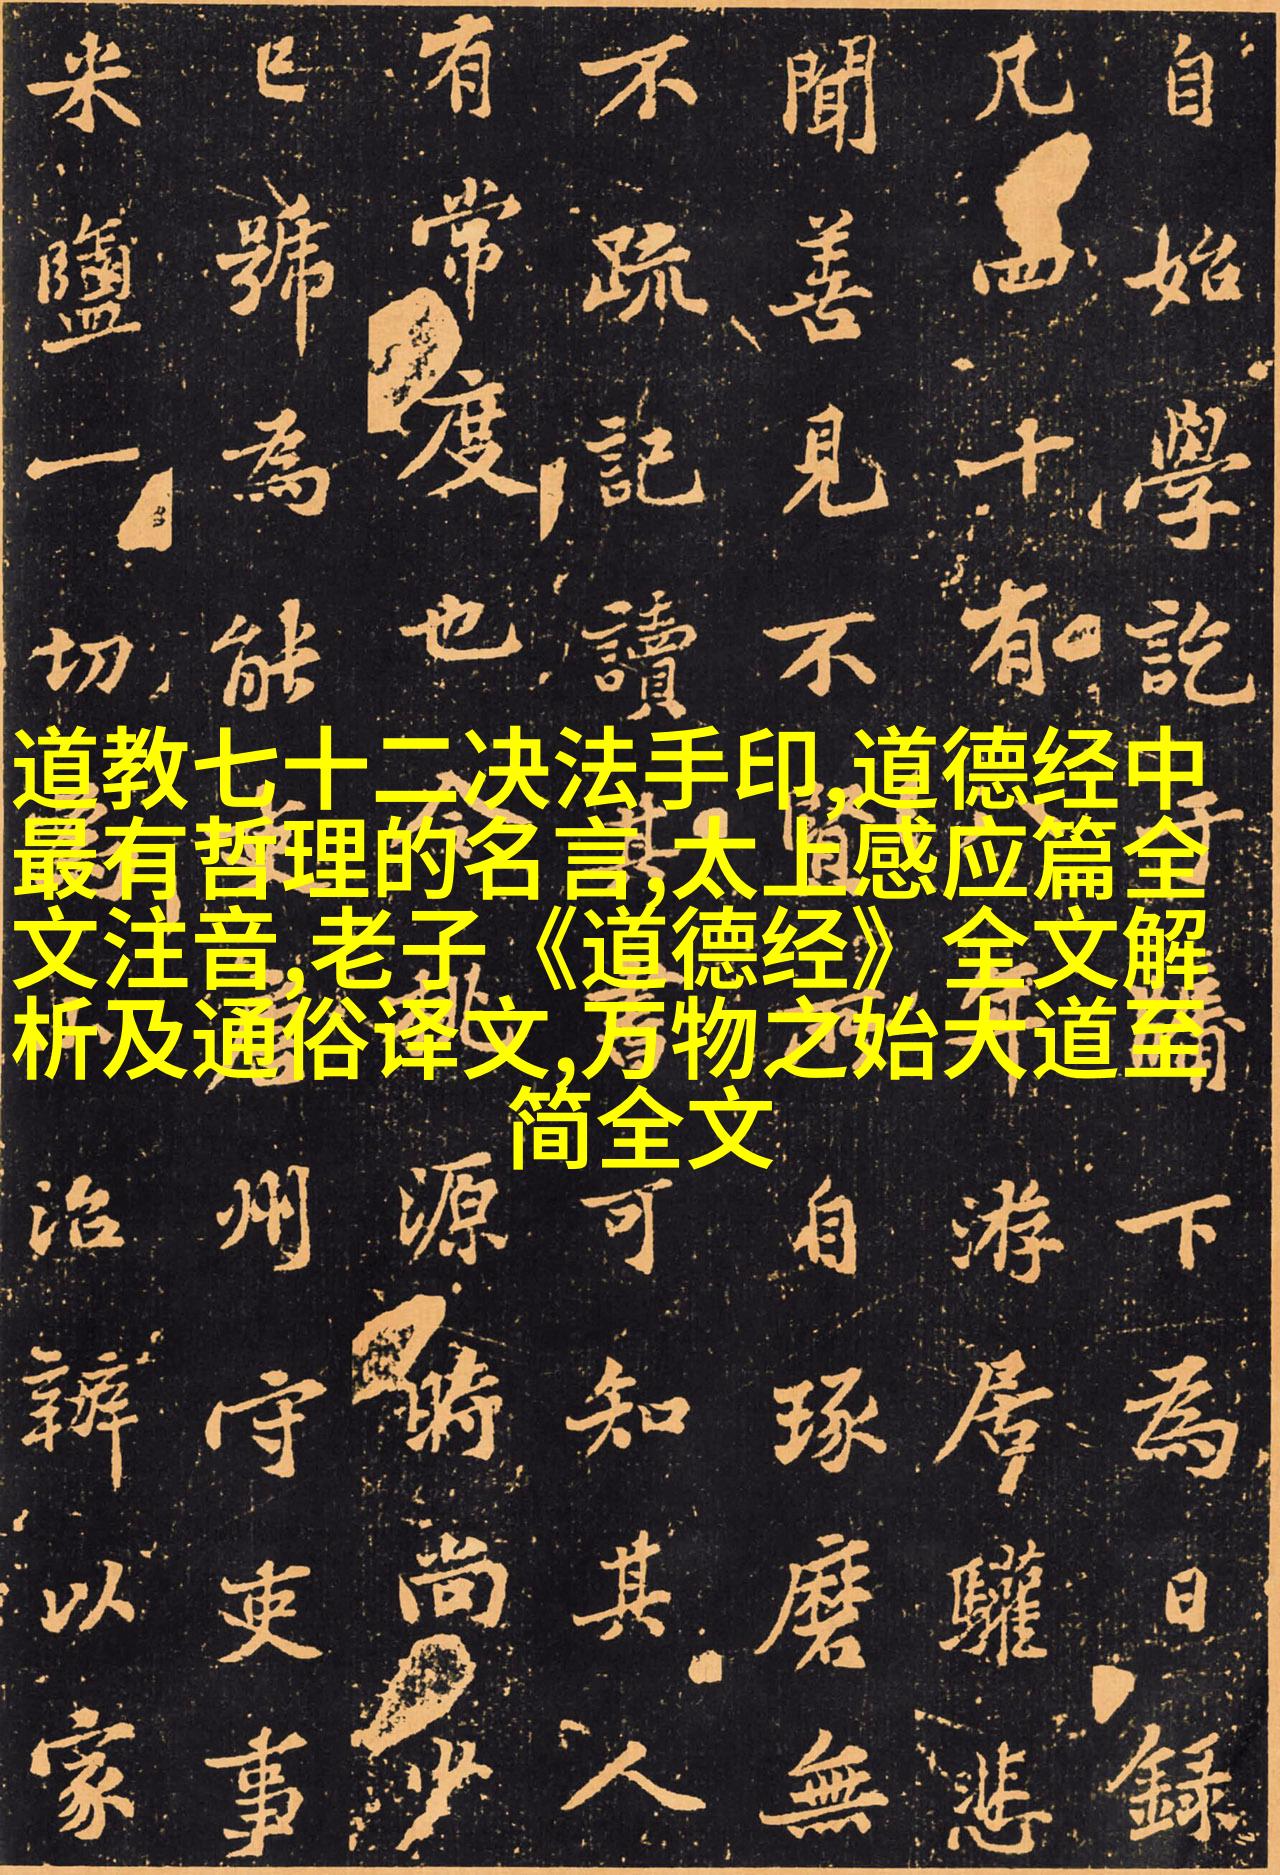 道教七十二决法手印,道德经中
最有哲理的名言,太上感应篇全
文注音,老子《道德经》全文解
析及通俗译文,万物之始大道至
简全文
自始學訖于下為日錄
凡四十有年游居驩悲
聞善見不賢自琢磨無
不疏記讀其書可知其人
有常度也余源時尚少
已號為能州守吏事
米鹽一切治辦以家